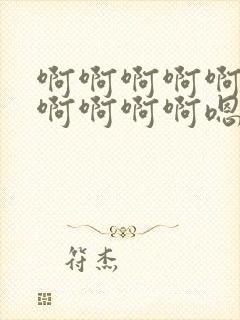 啊啊啊啊啊
啊啊啊啊嗯
符杰